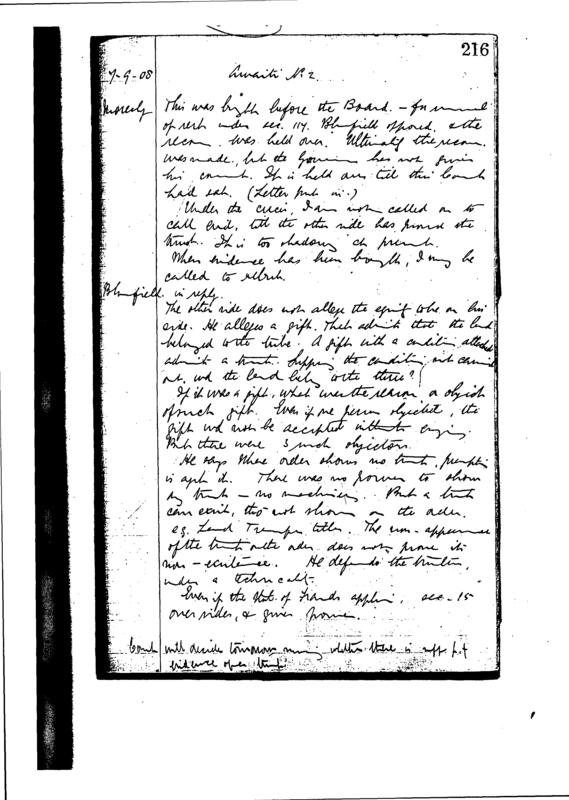 216
7-9-08 Awaiti No 2
This was brought before the Board. - for removal
of rest under sec. 114. Blomfield opposed, & the
recom. was held over. Ultimately the recom.
was made, but the Governor has not given
his consent. It is held over till this Court
had sat. (Letter put in.)
Under the circs, I am not called on to
call evid, till the other side has proved the
trust. It is too shadowy at present.
When evidence has been brought, I may be
called to rebut.
Blomfield in reply.
The other side does not allege the equity to be on his
side. He alleges a gift. That admits that the land
belonged to the tribe. A gift with a condition attached
admits a trust. Supposing the condition not carried
out, wd the land belong to the three?
If it was a gift, what was the reason or object
of such gift. Even if one person objected, the
gift wd not be accepted without enquiry
But there were 3 such objectors.
He says where order shows no trust, presumption
is agst it. There was no power to show
any trust - no machinery. But a trust
can exist, tho' not shown on the order.
e.g. Land Transfer titles. The non-appearance
of the trust on the order does not prove its
non-existence. He defends the trustees,
under a technicality.
Even if the Stat. of Frauds applies, sec-15
overrides, & gives power.
Court will decide tomorrow morning whether there is suff. p.f.
evidence of a trust